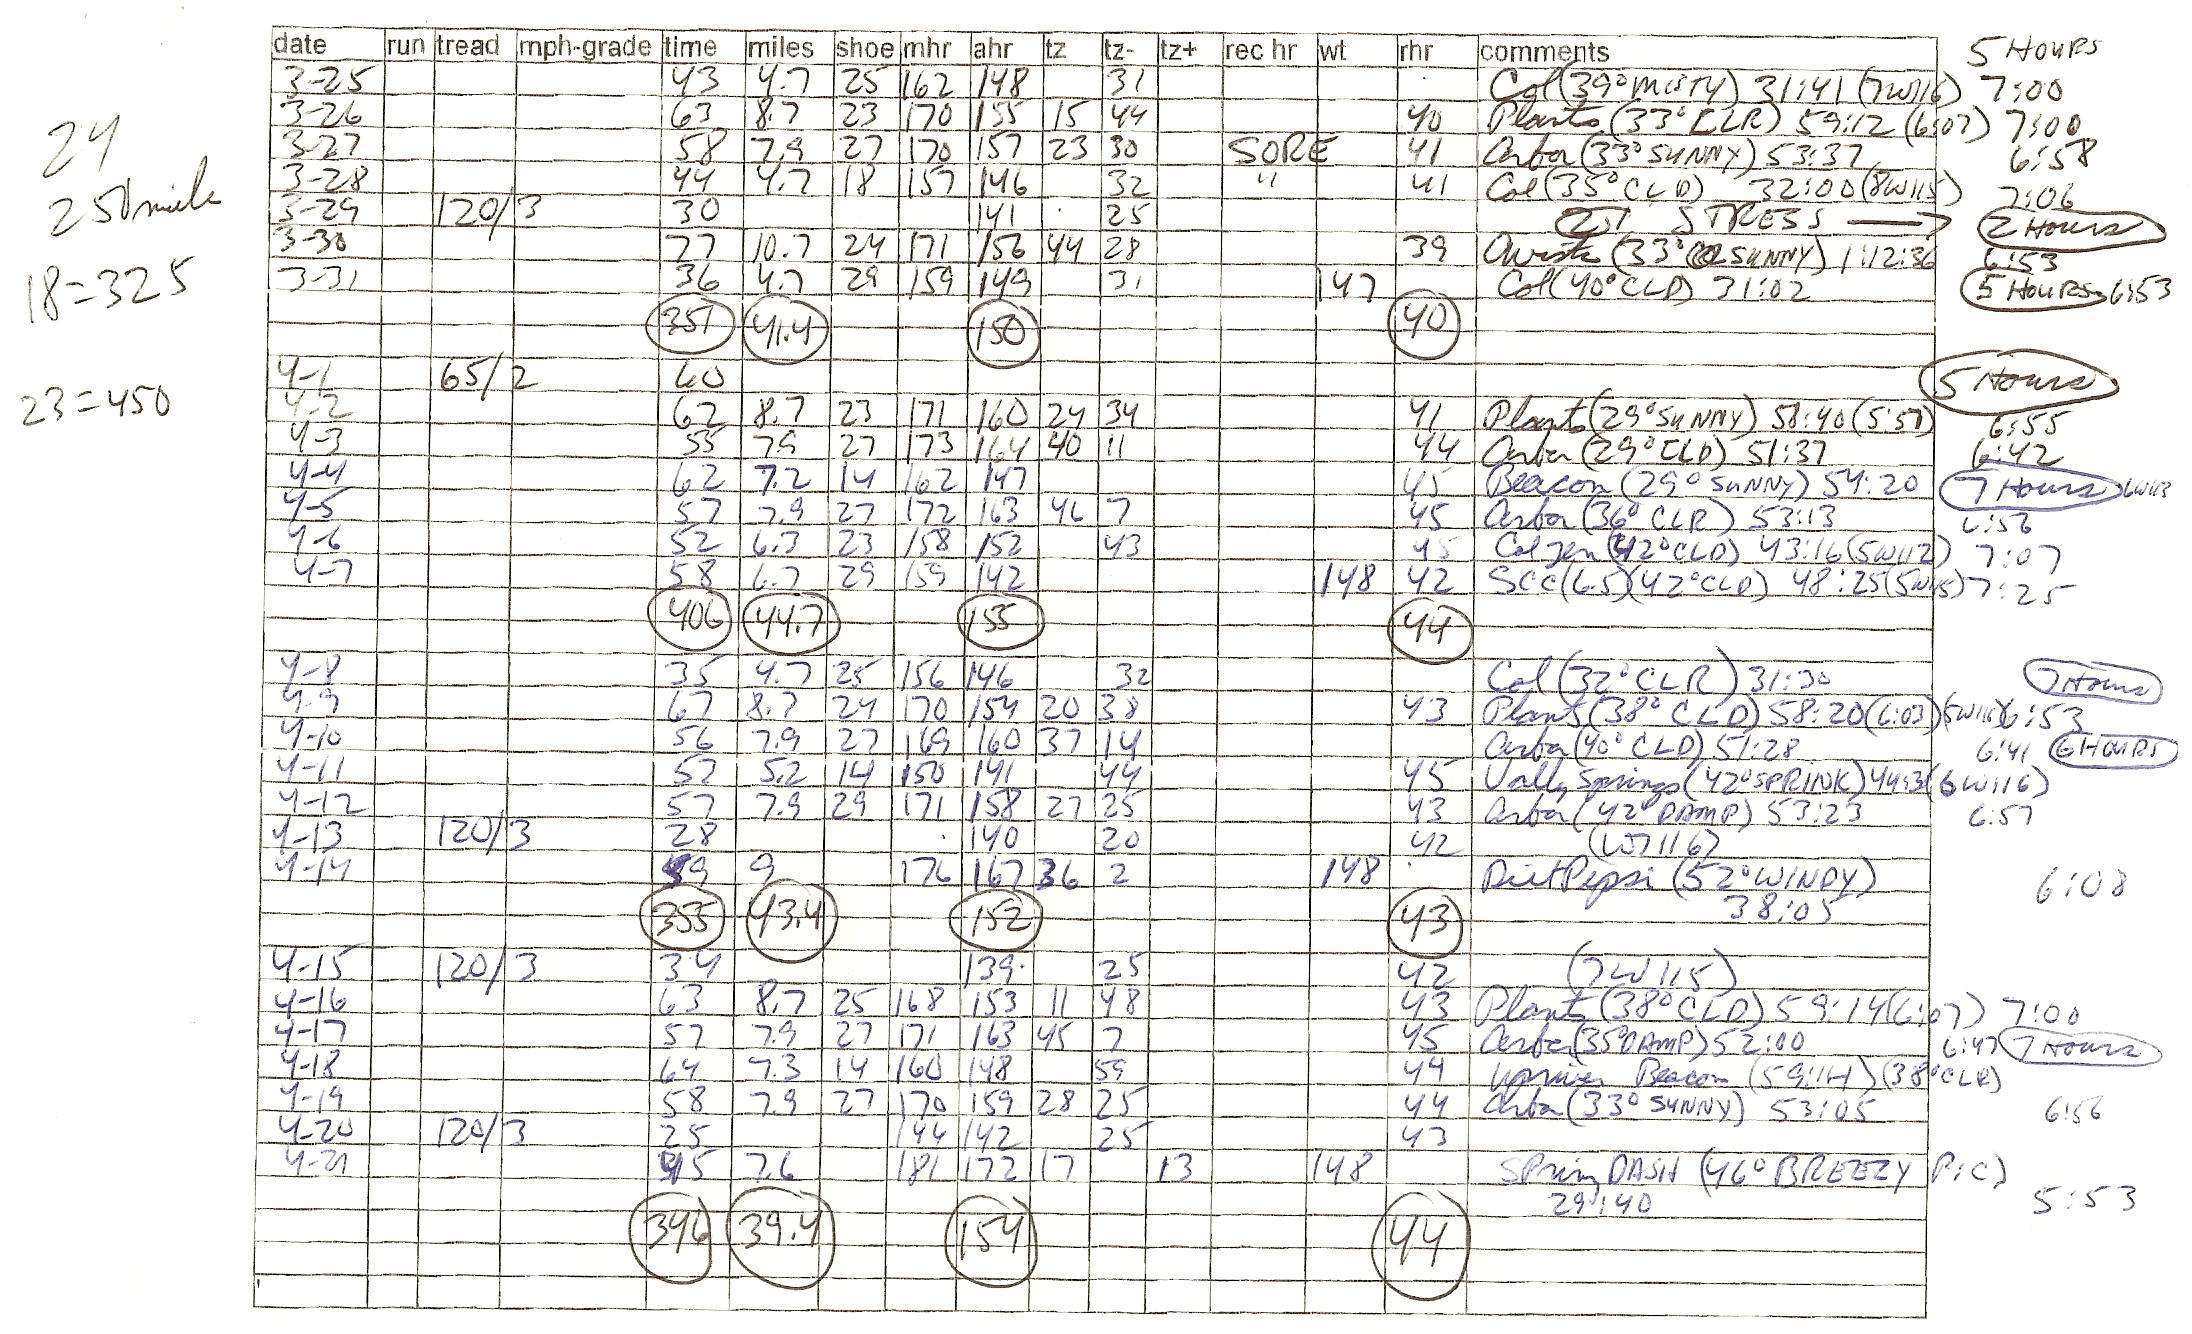 date run tread mph-grade time miles shoe mhr ahr tz tz- tz+ rec hr wt rhr comments 5 HOURS
3-25 43 4.7 25 162 148 31 Col (39° MISTY) 31:41 (7W116) 7:00
3-26 63 8.7 23 170 155 15 44 40 Plants (33° CLR) 59:12 (6:07) 7:00
24
3-27 58 7.9 27 170 157 23 30 SORE 41 Arbor (33° SUNNY) 53:37 6:58
3-28 44 4.7 18 157 146 32 " 41 Col (35° CLD) 32:00 (8W115) 7:06
250 mile
3-29 120/3 30 141 25 STRESS → 2 HOURS
3-30 77 10.7 24 171 156 44 28 39 (33° SUNNY) 1:12:36 6:53
18=325
3-31 36 4.7 29 159 149 31 147 Col (40° CLD) 31:02 5 HOURS 6:53
351 41.4 150 40
4-1 65/2 60 5 HOURS
23=450
4-2 62 8.7 23 171 160 24 34 41 Plants (29° SUNNY) 58:40 (5:57) 6:55
4-3 55 7.9 27 173 164 40 11 44 Arbor (29° CLD) 51:37 6:42
4-4 62 7.2 14 162 147 45 Beacon (29° SUNNY) 54:20 7 HOURS
4-5 57 7.9 27 172 163 46 7 45 Arbor (36° CLR) 53:13
4-6 52 6.3 23 158 152 43 45 Col (42° CLD) 43:16 (5W112) 7:07
4-7 58 6.7 29 159 142 148 42 SCC (6.5) (42° CLD) 48:25 (5W115) 7:25
406 44.7 155 44
4-8 35 4.7 25 156 146 32 Col (32° CLR) 31:30 7 Hours
4-9 67 8.7 24 170 154 20 38 43 Plant (38° CLD) 58:20 (6:03) (5W116) 6:53
4-10 56 7.9 27 169 160 37 14 Arbor (40° CLD) 51:28 6:41 6 HOURS
4-11 52 5.2 14 150 141 44 45 Vally Springs (42° SPRINK) (6W116)
4-12 57 7.9 29 171 158 27 25 43 Arbor (42° DAMP) 53:23 6:57
4-13 120/3 28 140 20 42 (W7116)
4-14 59 9 176 167 36 2 148 Diet Pepsi (52° WINDY) 6:08
38:05
355 43.4 152 43
4-15 120/3 34 139 25 42 (7W115)
4-16 63 8.7 25 168 153 11 48 43 Plants (38° CLD) 59:14 (6:07) 7:00
4-17 57 7.9 27 171 163 45 7 45 Arbor (35° DAMP) 52:00 6:47 7 HOURS
4-18 64 7.3 14 160 148 59 44 Upriver Beacon (59:14) (38° CLR)
4-19 58 7.9 27 170 159 28 25 44 Arbor (33° SUNNY) 53:05 6:56
4-20 120/3 25 144 142 25 43
4-21 45 7.6 181 172 17 13 148 Spring DASH (46° BREEZY PIC)
29:40 5:53
346 39.4 154 44